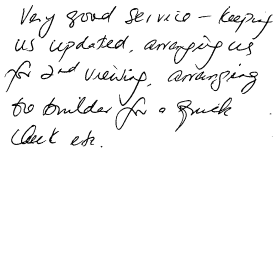 Very good service - keeping
us updated, arranging us
for 2nd viewing, arranging
the builder for a quick
check etc.